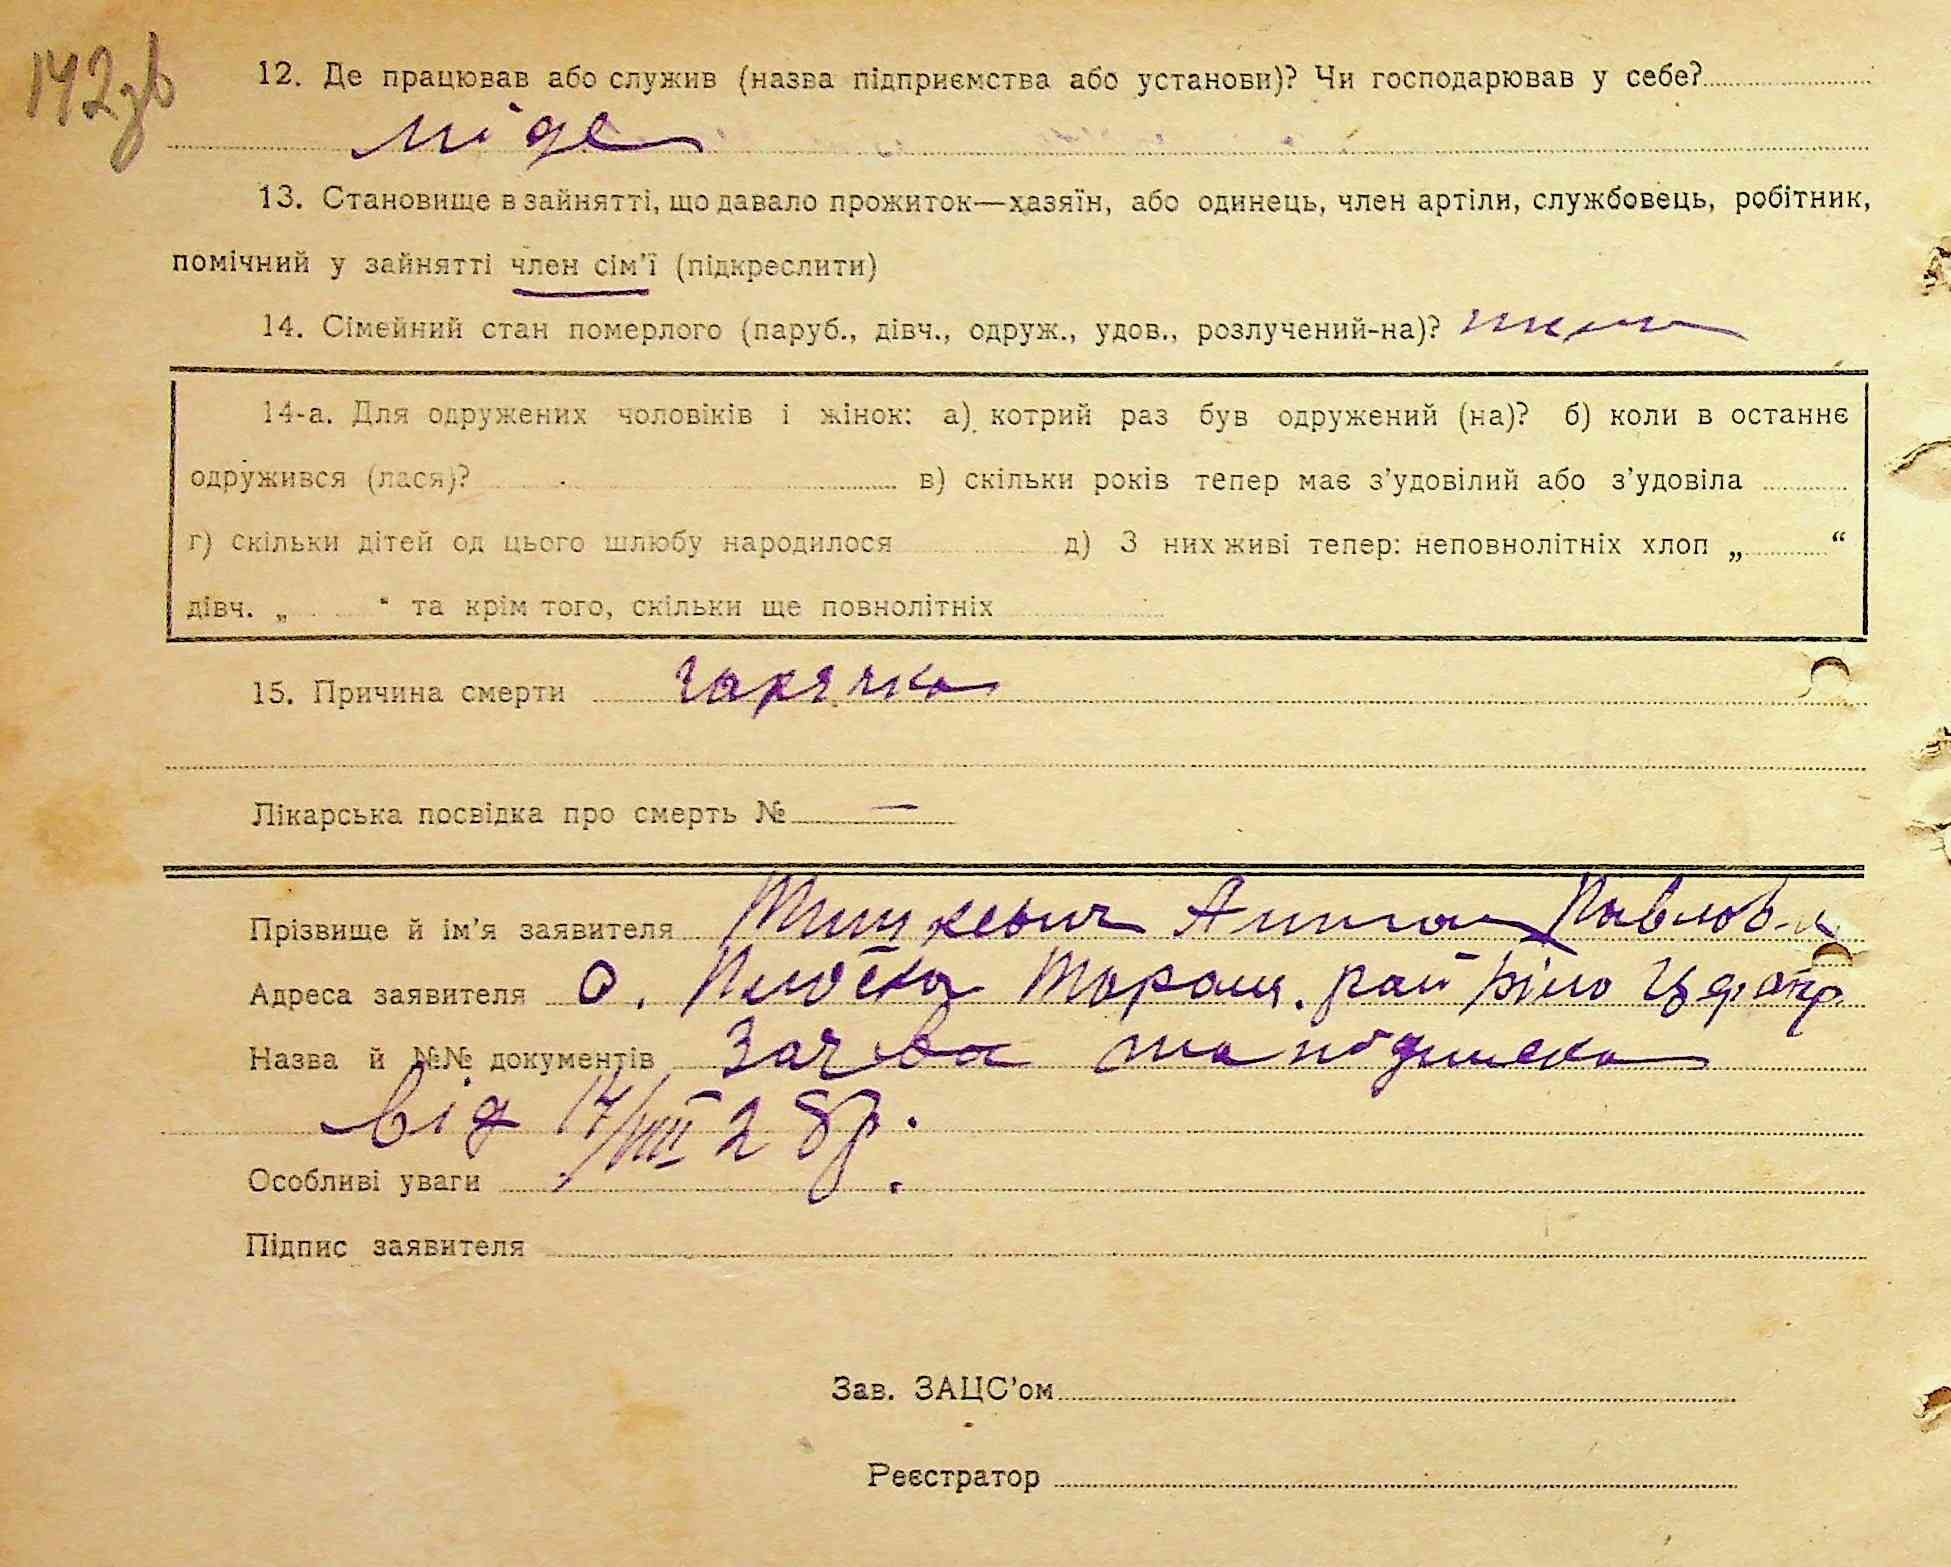 142 зв
12. Де працював або служив (назва підприємства або установи)? Чи господарював у себе?
ніде
13. Становище в зайнятті, що давало прожиток—хазяїн, або одинець, член артіли, службовець, робітник,
помічний у зайнятті член сім'ї (підкреслити)
14. Сімейний стан померлого (паруб., дівч., одруж., удов., розлучений-на)?
14-а. Для одружених чоловіків і жінок: а) котрий раз був одружений (на)? б) коли в останнє
одружився (лася)? в) скільки років тепер має з'удовілий або з'удовіла
г) скільки дітей од цього шлюбу народилося д) З них живі тепер: неповнолітніх хлоп „ “
дівч. „ “ та крім того, скільки ще повнолітніх
15. Причина смерти гарячка
Лікарська посвідка про смерть № —
Прізвище й ім'я заявителя Антон Павлов.
Адреса заявителя Таращ. рай Біло Церк окр
Назва й №№ документів Заява та підписка
від 17/VIII 28р.
Особливі уваги
Підпис заявителя
Зав. ЗАЦС'ом
Реєстратор